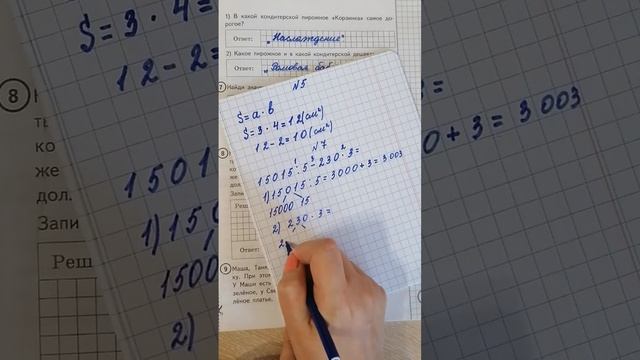 1) В какой кондитерской пирожное «Корзинка» самое до-
рогое?
Ответ: „Наслаждение"
2) Какое пирожное и в какой кондитерской
Ответ: „Ромовая
7 Найди
№5
S = a · b
S = 3 · 4 = 12 (см²)
12 - 2 = 10 (см²)
№7
15015 : 5 - 230 · 3 =
1) 15015 : 5 = 3000 + 3 = 3 003
15000 15
2) 230 · 3 =
2
8
Ответ:
9 Маша, Таня,
ку. При этом
У Маши есть
зелёное, у Све
лёное платье.
S = 3 · 4
12 - 2 =
8
ть
ко
же
дол.
Запи
Реш
15015
1) 150
1500
2)
0 + 3 = 3 003